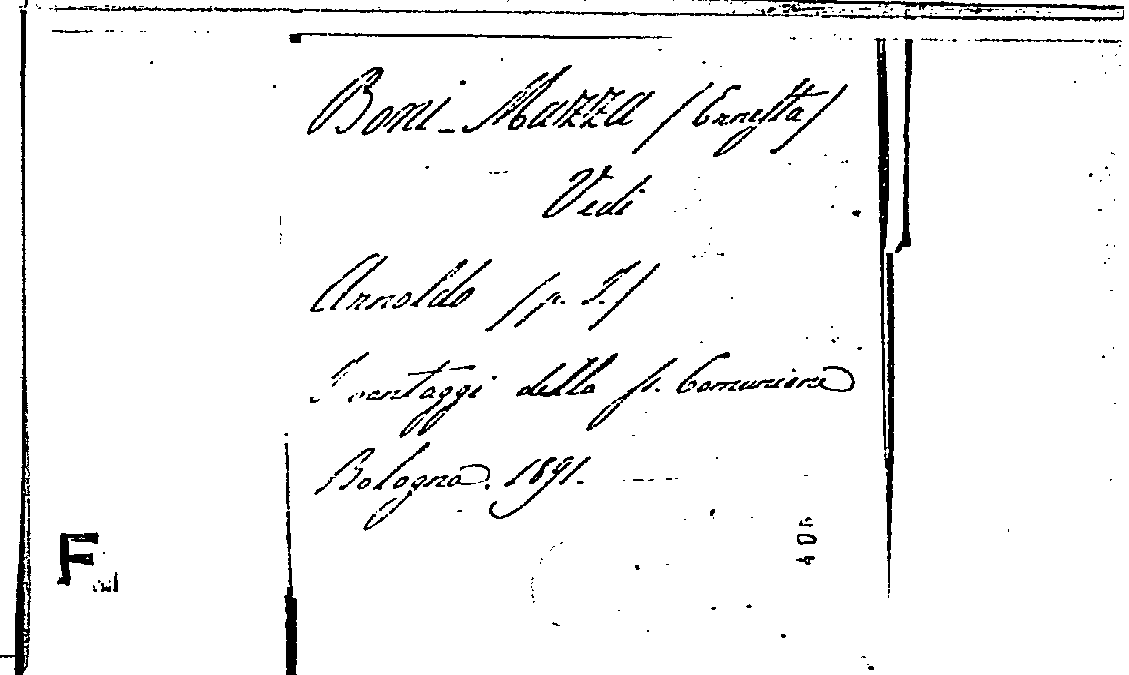 Boni-Mazza (Ernesta)
Vedi
Arnoldo (p. I.)
I vantaggi della s. Comunione
Bologna. 1891.
F